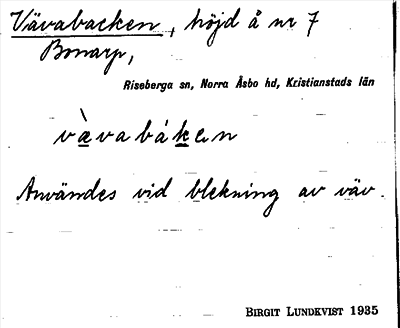 Vävabacken, höjd å nr 7
Bonarp,
Riseberga sn, Norra Åsbo hd, Kristianstads län
vàvabáken
Användes vid blekning av väv.
BIRGIT LUNDKVIST 1935